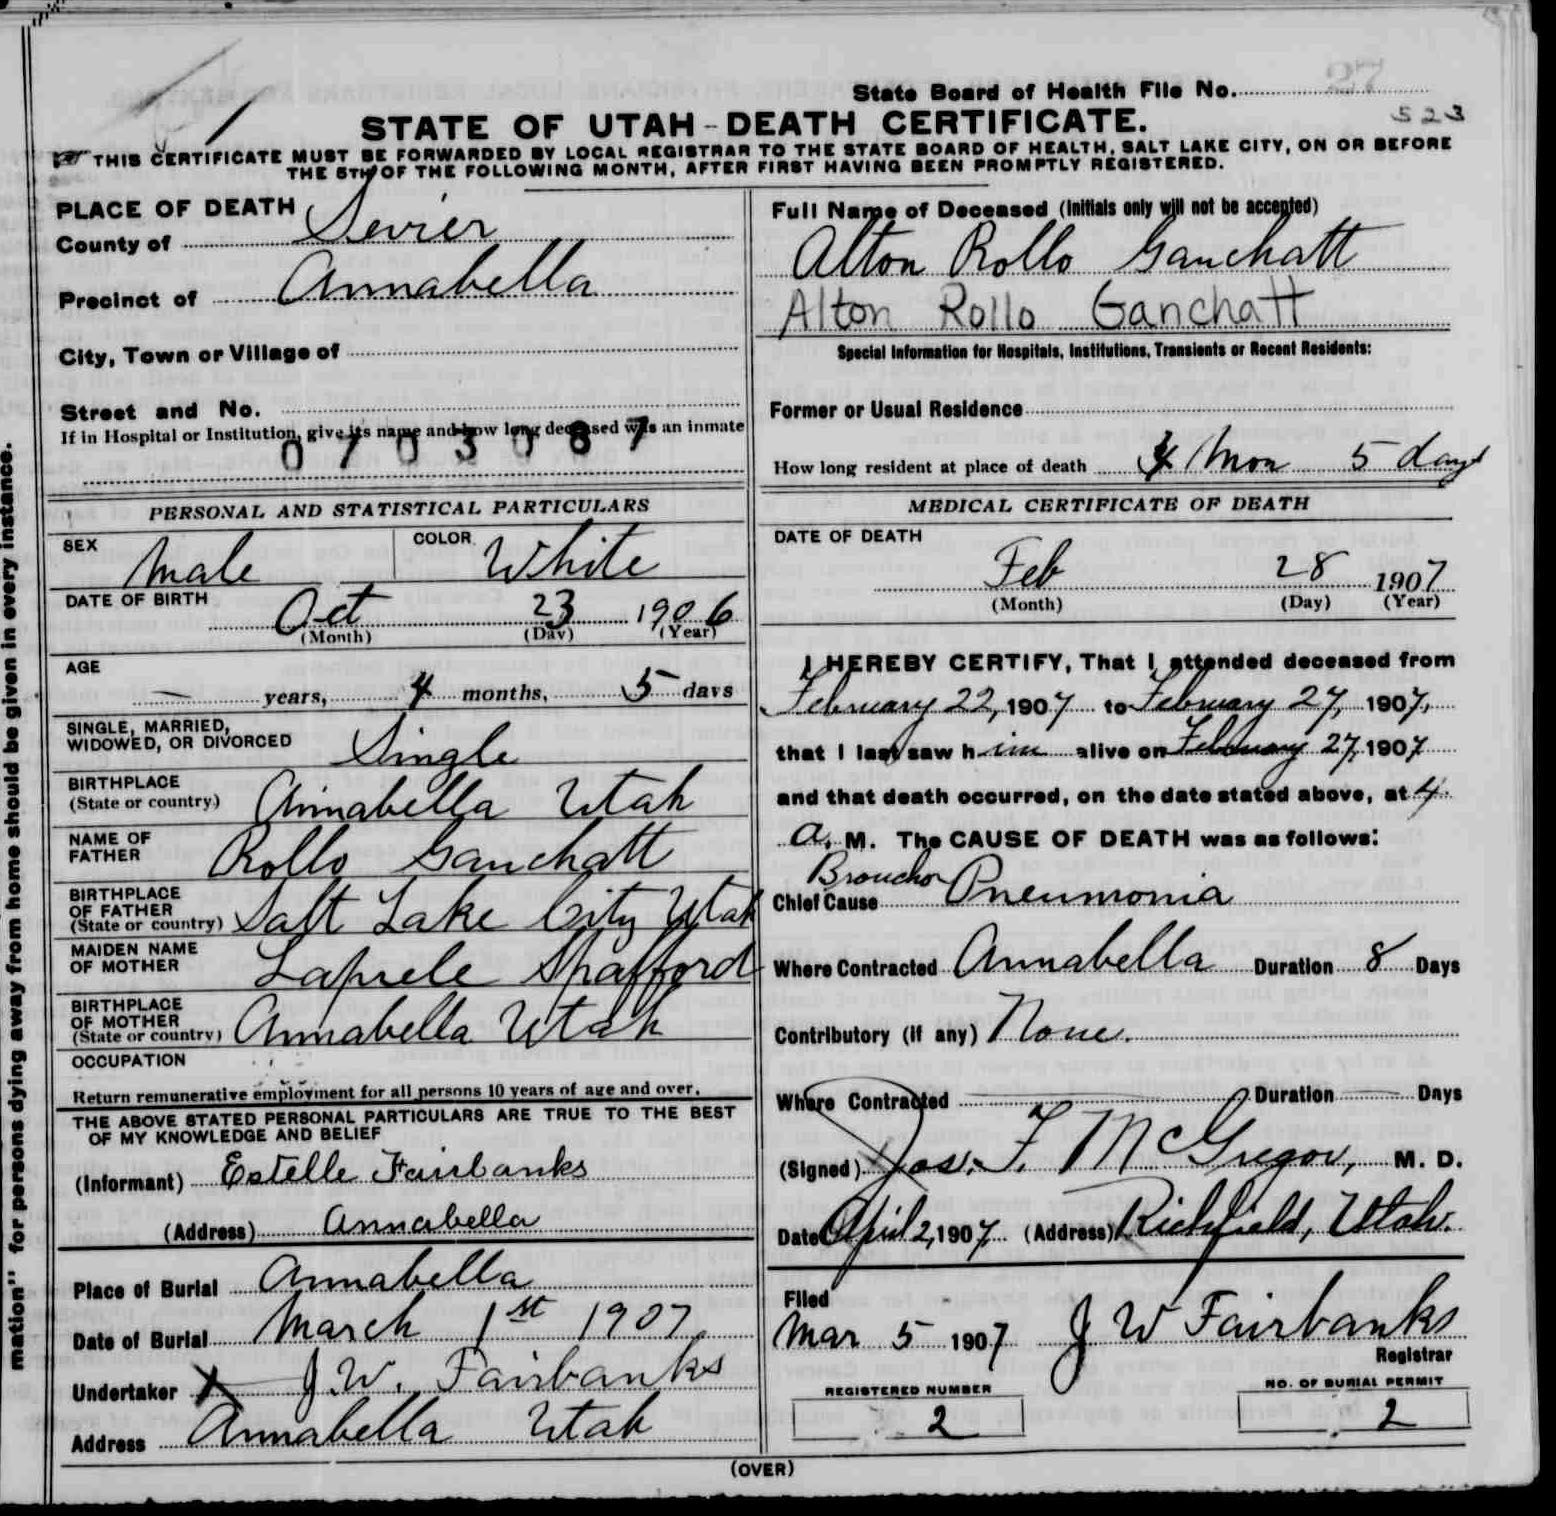 27
State Board of Health File No.
523
1
STATE OF UTAH - DEATH CERTIFICATE.
THIS CERTIFICATE MUST BE FORWARDED BY LOCAL REGISTRAR TO THE STATE BOARD OF HEALTH, SALT LAKE CITY, ON OR BEFORE
THE 5TH OF THE FOLLOWING MONTH, AFTER FIRST HAVING BEEN PROMPTLY REGISTERED.
PLACE OF DEATH
County of Sevier
Precinct of Annabella
City, Town or Village of
Street and No.
If in Hospital or Institution, give its name and how long deceased was an inmate
0703087
PERSONAL AND STATISTICAL PARTICULARS
SEX Male COLOR White
DATE OF BIRTH
Oct 23 1906
(Month) (Day) (Year)
AGE
— years, 4 months, 5 days
SINGLE, MARRIED,
WIDOWED, OR DIVORCED Single
BIRTHPLACE
(State or country) Annabella Utah
NAME OF
FATHER Rollo Ganchatt
BIRTHPLACE
OF FATHER
(State or country) Salt Lake City Utah
MAIDEN NAME
OF MOTHER Laprele Spafford
BIRTHPLACE
OF MOTHER
(State or country) Annabella Utah
OCCUPATION
Return remunerative employment for all persons 10 years of age and over.
THE ABOVE STATED PERSONAL PARTICULARS ARE TRUE TO THE BEST
OF MY KNOWLEDGE AND BELIEF
(Informant) Estelle Fairbanks
(Address) Annabella
Place of Burial Annabella
Date of Burial March 1st 1907
Undertaker J. W. Fairbanks
Address Annabella Utah
Full Name of Deceased (Initials only will not be accepted)
Alton Rollo Ganchatt
Alton Rollo Ganchatt
Special Information for Hospitals, Institutions, Transients or Recent Residents:
Former or Usual Residence
How long resident at place of death 4 Mon 5 days
MEDICAL CERTIFICATE OF DEATH
DATE OF DEATH
Feb 28 1907
(Month) (Day) (Year)
I HEREBY CERTIFY, That I attended deceased from
February 22, 1907 to February 27, 1907,
that I last saw him alive on February 27, 1907
and that death occurred, on the date stated above, at 4
a. M. The CAUSE OF DEATH was as follows:
Broncho
Chief Cause Pneumonia
Where Contracted Annabella Duration 8 Days
Contributory (if any) None.
Where Contracted Duration Days
(Signed) Jas. F. McGregor, M. D.
Date April 2, 1907 (Address) Richfield, Utah.
Filed
Mar 5 1907 J W Fairbanks
Registrar
REGISTERED NUMBER
2
NO. OF BURIAL PERMIT
2
(OVER)
mation" for persons dying away from home should be given in every instance.